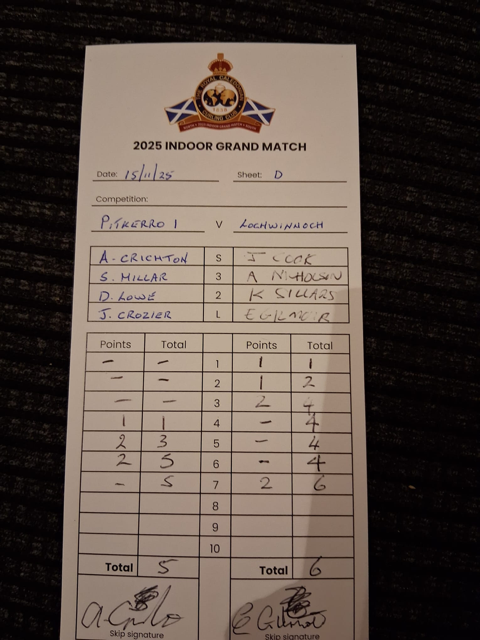 THE ROYAL CALEDONIAN
CURLING CLUB
1838
2025 INDOOR GRAND MATCH
Date: 15/11/25 Sheet: D
Competition:
PITKERRO 1 V LOCHWINNOCH
A. CRICHTON S J COOK
S. MILLAR 3 A NICHOLSON
D. LOWE 2 K SILLARS
J. CROZIER L
Points Total Points Total
- - 1 1 1
- - 2 1 2
- - 3 2 4
1 1 4 - 4
2 3 5 - 4
2 5 6 - 4
- 5 7 2 6
8
9
10
Total 5 Total 6
Skip signature Skip signature